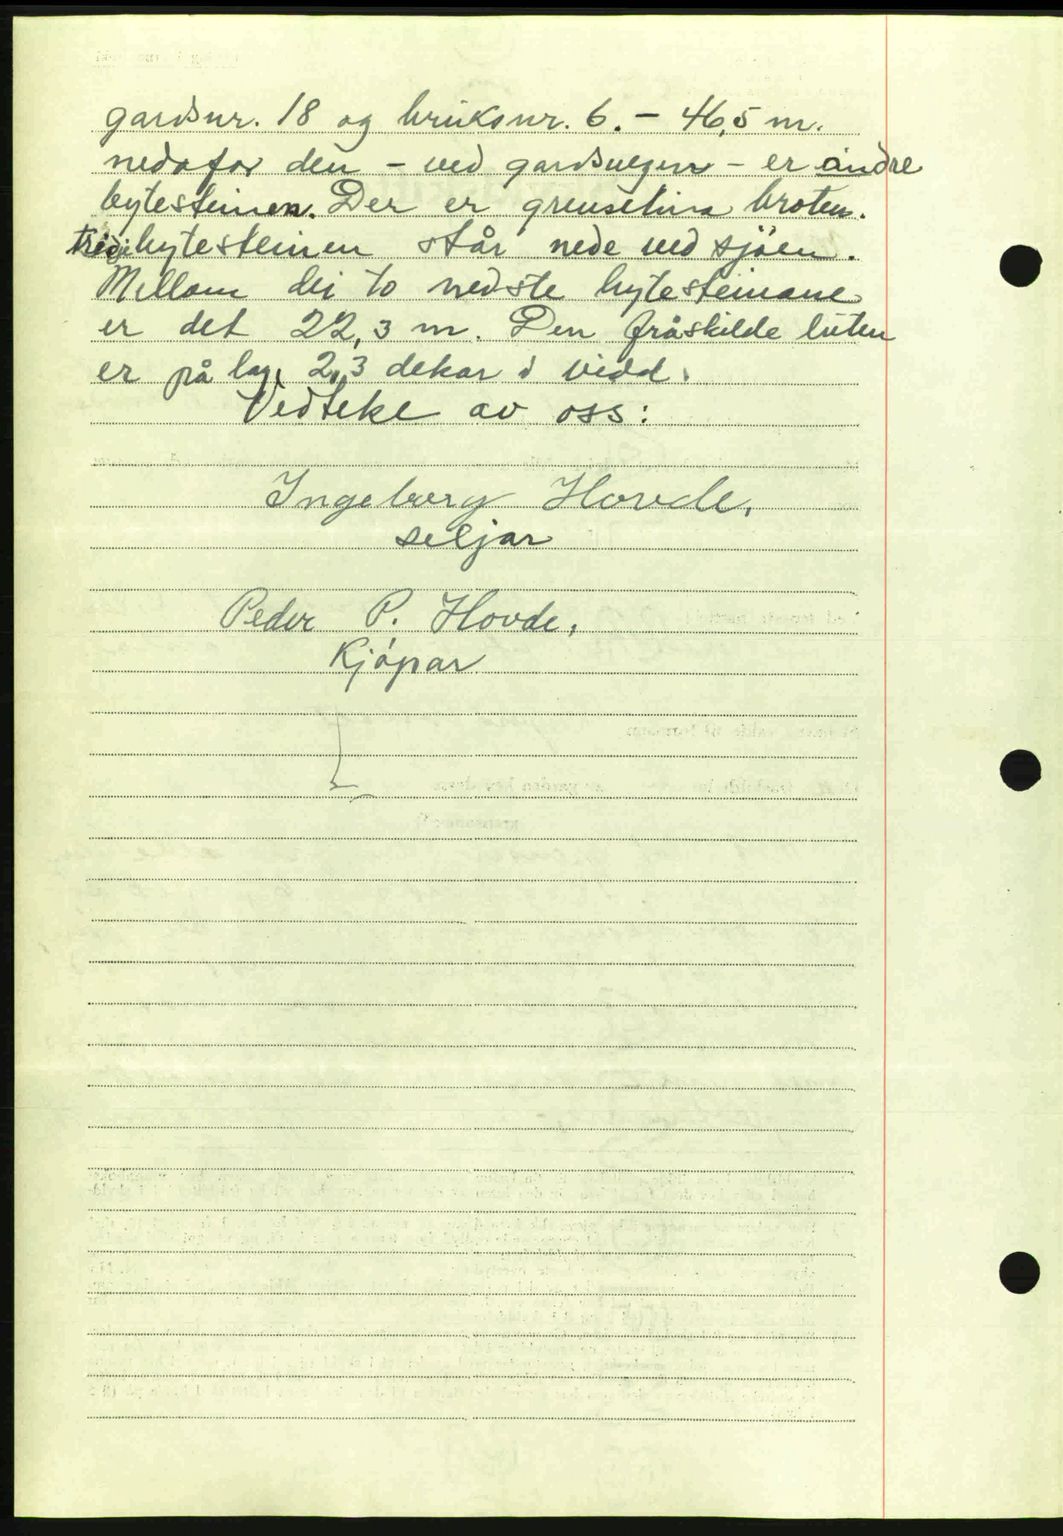 gardsnr. 18 og bruksnr. 6. – 46,5 m.
nedafor den – ved gardsvegen – er andre
bytesteinen. Der er grenselina broten.
tridje bytesteinen står nede ved sjøen.
Mellom dei to nedste bytesteinane
er det 22,3 m. Den fråskilde luten
er på lag 2,3 dekar i vidd.
Vedteke av oss:
Ingeborg Hovde,
seljar
Peder P. Hovde,
Kjópar